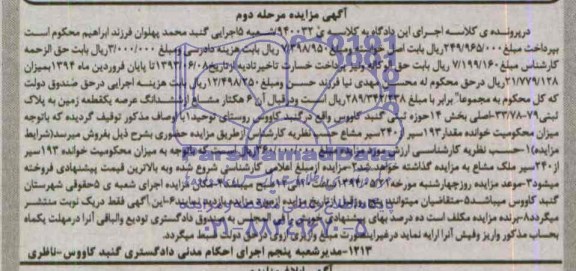 آگهی مزایده مرحله دوم
درپرونده ی کلاسه اجرای این دادگاه به کلاسه ی ۹۴۰۰۳۲ شعبه ۵ اجرایی گنبد محمد پهلوان فرزند ابراهیم محکوم است
بپرداخت مبلغ ۲۴۹/۹۶۵/۰۰۰ ریال بابت اصل خواسته ومبلغ ۷/۳۹۸/۹۵۰ ریال بابت هزینه دادرسی ومبلغ ۳/۰۰۰/۰۰۰ ریال بابت حق الزحمه
کارشناس مبلغ ۷/۱۹۹/۱۶۰ ریال بابت حق الوکاله ونیز پرداخت خسارت تاخیر تادیه ازتاریخ ۱۳۹۳/۰۶/۰۸ تا پایان فروردین ماه ۱۳۹۴ بمیزان
۲۱/۷۷۹/۱۲۸ ریال درحق محکوم له محسن مهدی نیا فرزند حسن ومبلغ ۱۲/۴۹۸/۲۵۰ ریال بابت هزینه اجرایی درحق صندوق دولت
که کل محکوم به مجموعا" برابر با مبلغ ریال است ودرقبال آن ۶ هکتار مشاع ازششدانگ عرصه یکقطعه زمین به پلاک
ثبتی ۷۹-۳۳۷۸ اصلی بخش ۱۴ حوزه ثبتی گنبد کاووس واقع درگنبد کاووس روستای توحید با اوصاف مذکور توقیف گردیده که باتوجه
میزان محکومیت خوانده مقدار ۱۹۳ سیر از ۲۴۰ سیر مشاع حسب نظریه کارشناس ازطریق مزایده حضوری بشرح ذیل بفروش میرسد (شرایط
مزایده) ۱-حسب نظریه کارشناسی ارزش مورد مزایده مبلغ ریال است که باتوجه به میزان محکومیت خوانده ۱۹۳ سیر
از ۲۴۰ سیر ملک مشاع به مزایده گذاشته خواهد شد ۲-مزایده از مبلغ اعلامی کارشناسی شروع شده وبه بالاترین قیمت پیشنهادی فروخته
میشود ۳-موعد مزایده روز چهارشنبه مورخه ساعت صبح میباشد ۴-مکان مزایده اجرای شعبه ی ۵ حقوقی شهرستان
گنبد کاووس میباشد ۵-متقاضیان میتوانند پنج روز قبل ازتاریخ مزایده ازمورد مزایده بازدید نمایند ۶-این آگهی فقط دریک نوبت منتشر
میگردد ۸-برنده مزایده مکلف است ده درصد بهای پیشنهادی خویش را فی المجلس به صندوق دادگستری تودیع والباقی آنرا درمهلت یکماه
بحساب مذکور واریز وفیش آنرا ارایه نماید درغیراینصورت مبلغ واریزی ازوی درحق دولت ضبط میگردد.
۱۲۱۳-مدیرشعبه پنجم اجرای احکام مدنی دادگستری گنبد کاووس-ناظری
ParsNamadData
۰۲۱-۸۸۳۴۹۶۷۰-۵